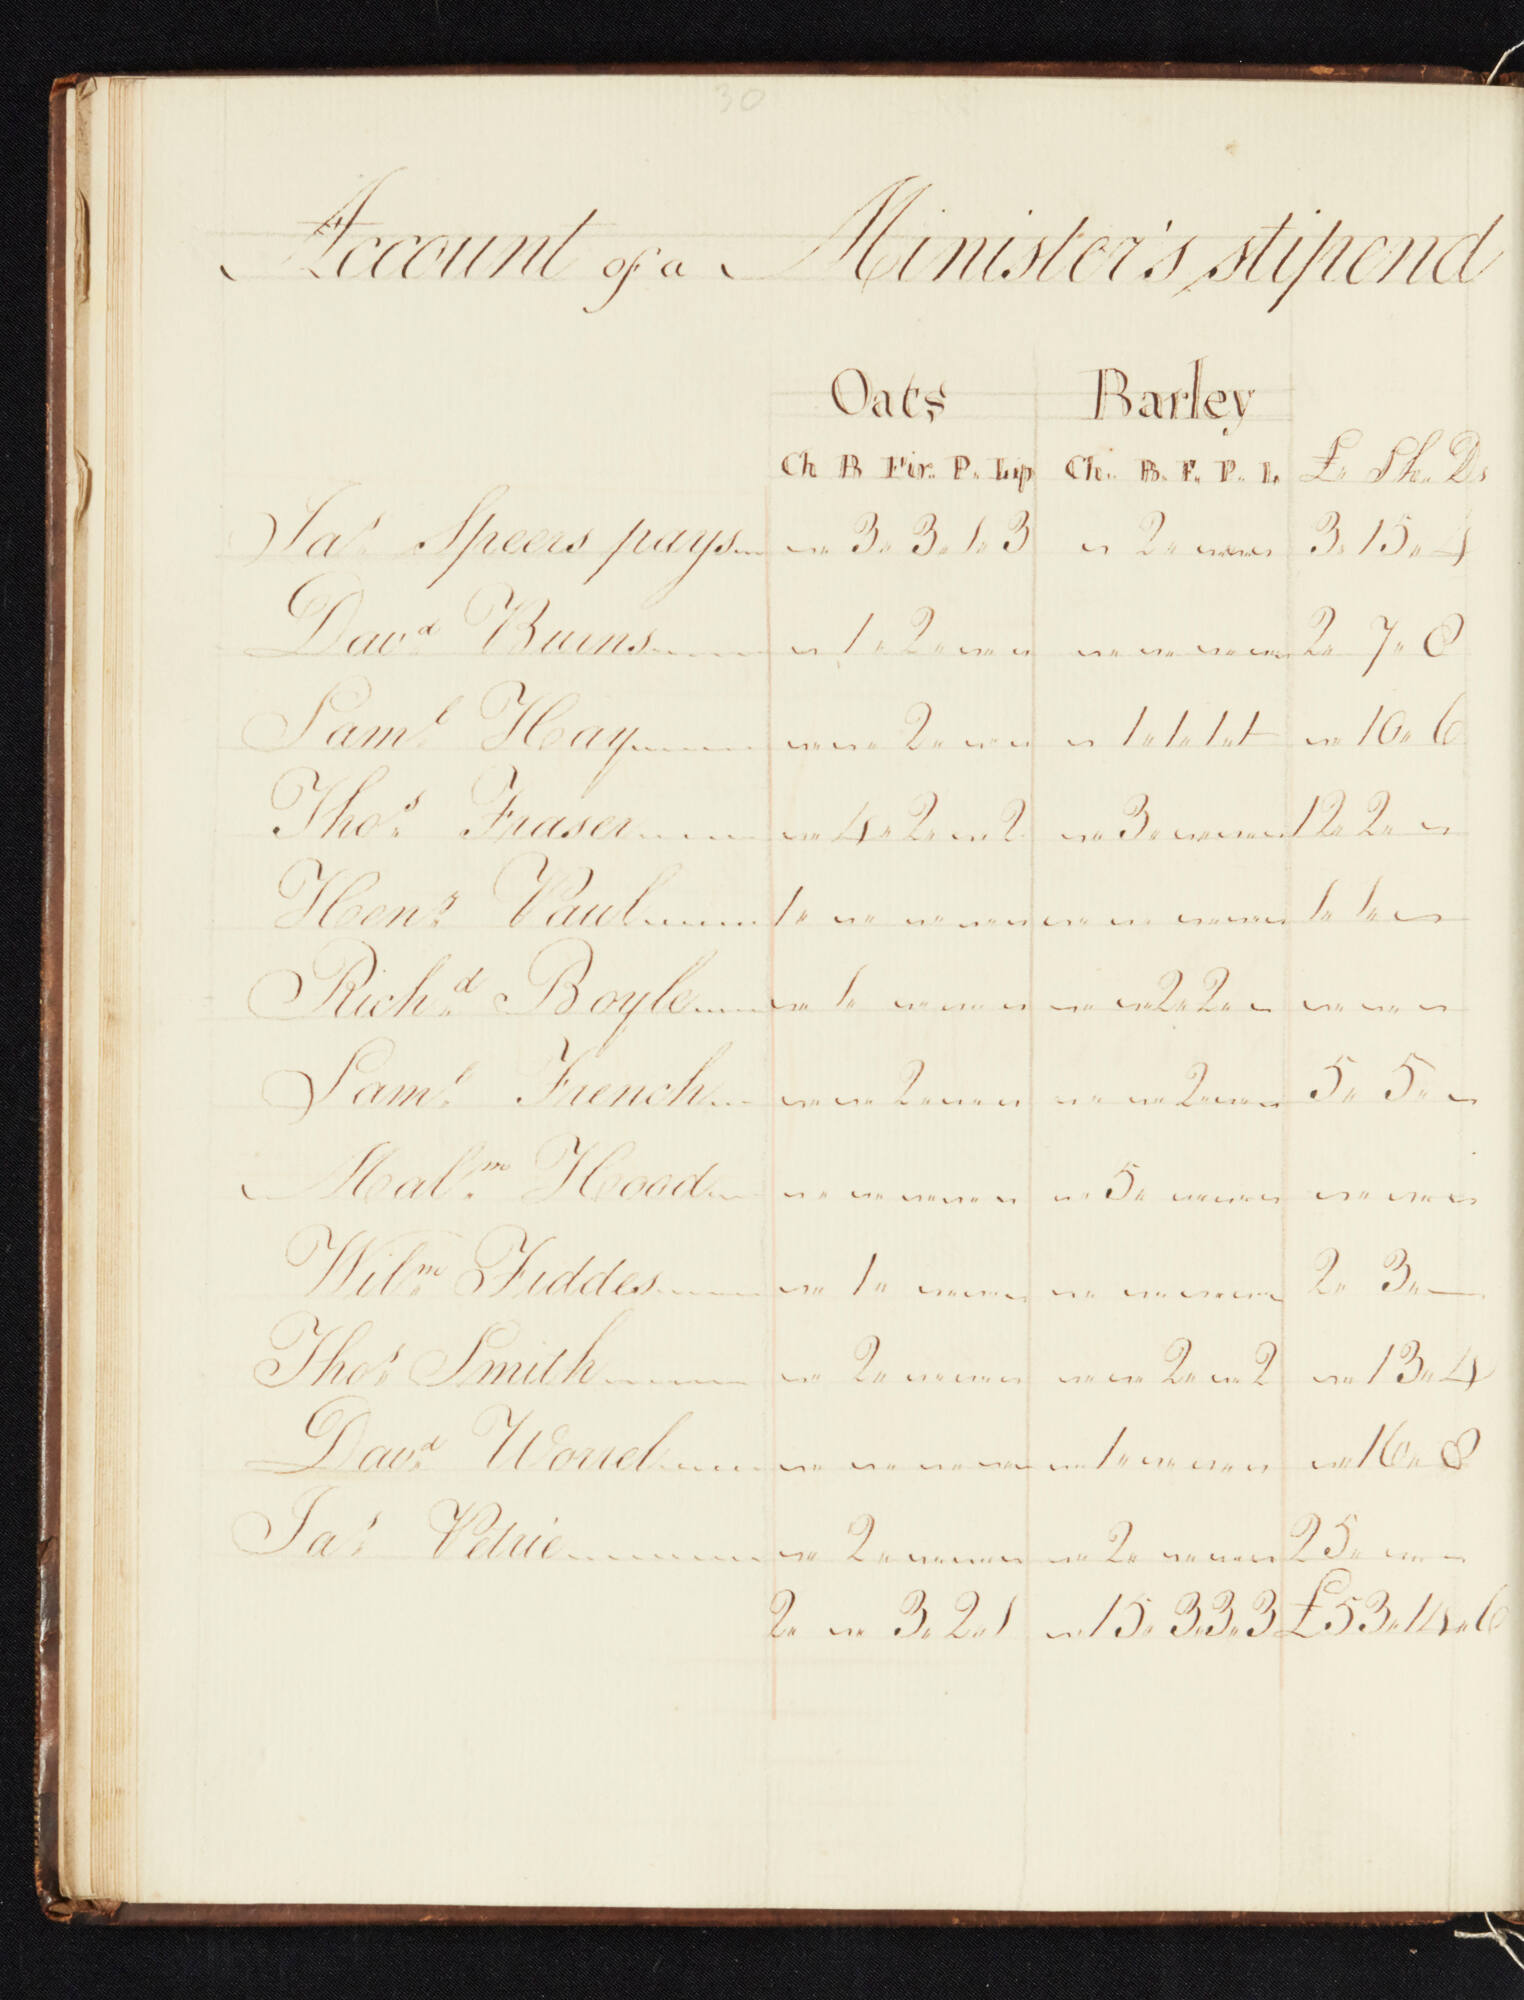 30
Account of a Minister's stipend
Oats Barley
Ch B Fir. P. Lip Ch. B. F. P. L. £. Sh. D.
Jas. Speers pays 〃 3. 3. 1. 3 〃 2. 〃 〃 〃 3. 15. 4
Davd. Burns 〃 1. 2. 〃 〃 〃 〃 〃 〃 〃 2. 7. 8
Saml. Hay 〃 〃 2. 〃 〃 〃 1. 1. 1. 1 〃 10. 6
Thos. Fraser 〃 4. 2. 〃 2 〃 3. 〃 〃 〃 12. 2. 〃
Heny. Paul 1. 〃 〃 〃 〃 〃 〃 〃 〃 〃 1. 1. 〃
Richd. Boyle 〃 1. 〃 〃 〃 〃 〃 2. 2. 〃 〃 〃 〃
Saml. French 〃 〃 2. 〃 〃 〃 〃 2. 〃 〃 5. 5. 〃
Malm. Hood 〃 〃 〃 〃 〃 〃 5. 〃 〃 〃 〃 〃 〃
Wilm. Fiddes 〃 1. 〃 〃 〃 〃 〃 〃 〃 〃 2. 3. —
Thos. Smith 〃 2. 〃 〃 〃 〃 〃 2. 〃 2 〃 13. 4
Davd. Worrel 〃 〃 〃 〃 〃 〃 1. 〃 〃 〃 〃 16. 8
Jas. Petrie 〃 2. 〃 〃 〃 〃 2. 〃 〃 〃 25. 〃 〃
2. 〃 3. 2. 1 〃 15. 3. 3. 3 £53. 14. 6